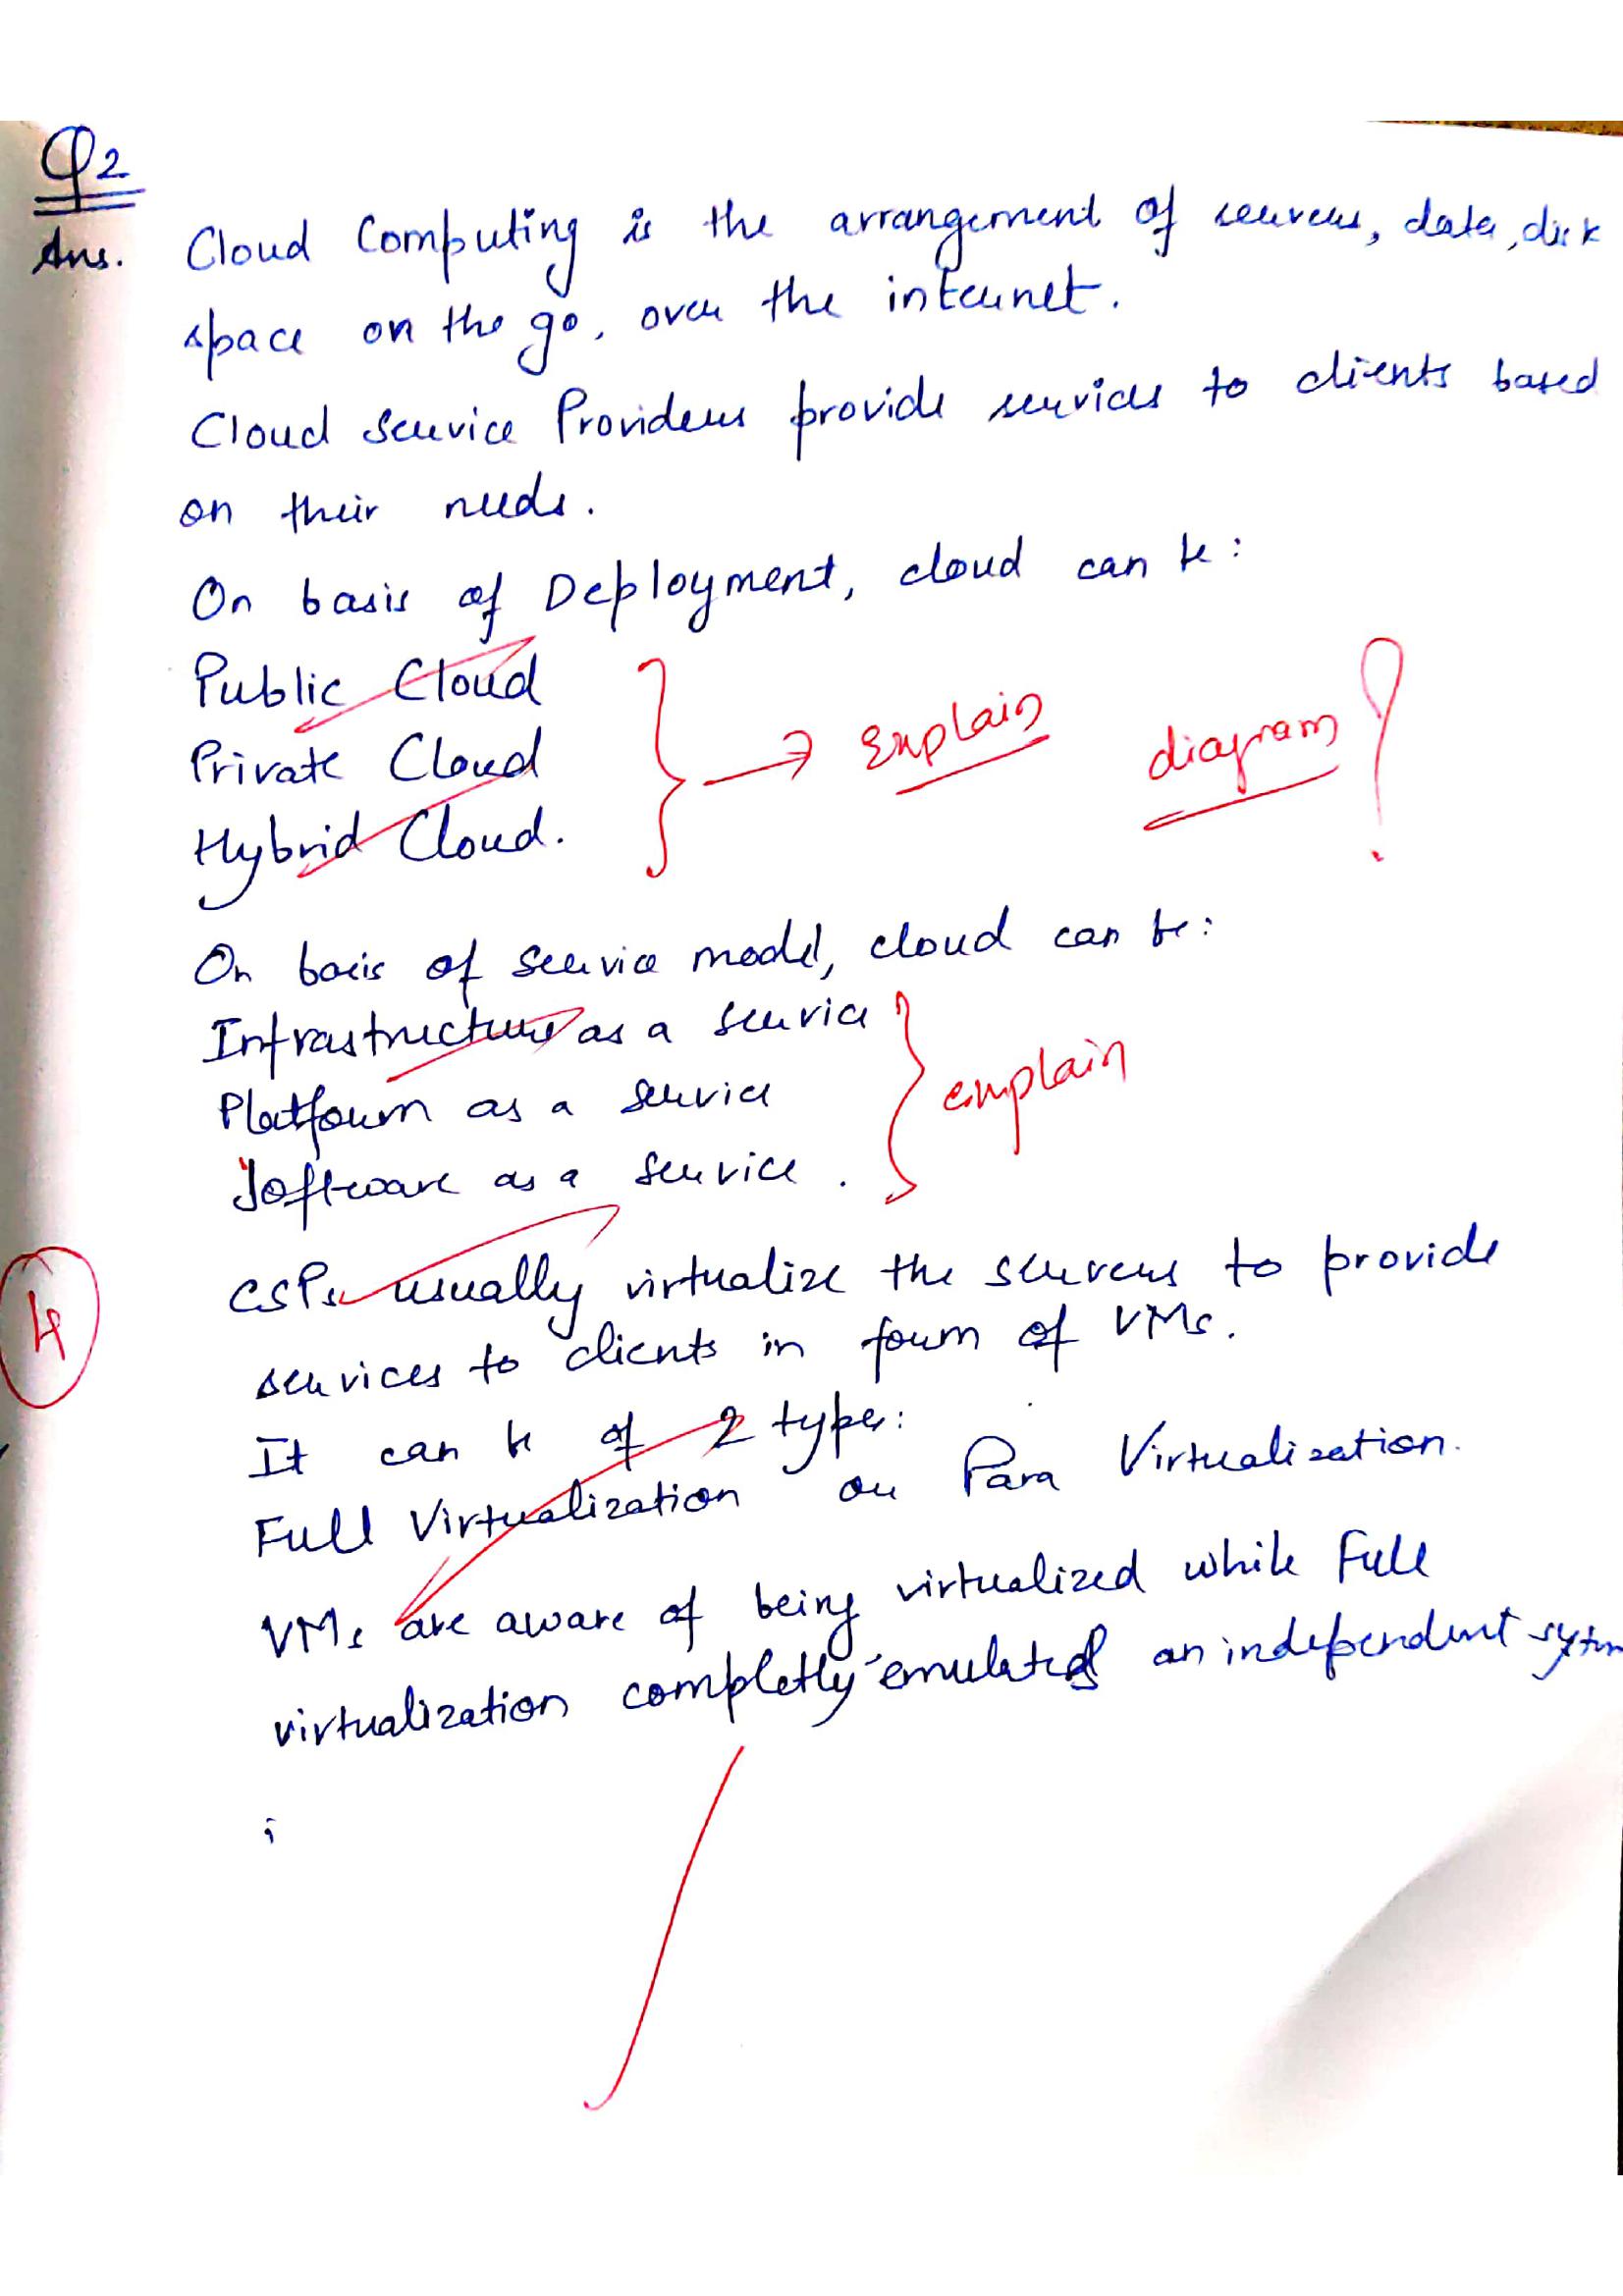 Q2
Ans. Cloud Computing is the arrangement of servers, data, disk
space on the go, over the internet.
Cloud Service Providers provide services to clients based
on their needs.
On basis of Deployment, cloud can be:
Public Cloud
Private Cloud → Explain diagram?
Hybrid Cloud.
On basis of service model, cloud can be:
Infrastructure as a service
Platform as a service explain
Software as a service.
CSPs usually virtualize the servers to provide
4 services to clients in form of VMs.
It can be of 2 types:
Full Virtualization or Para Virtualization.
VMs are aware of being virtualized while Full
virtualization completly emulates an independent system